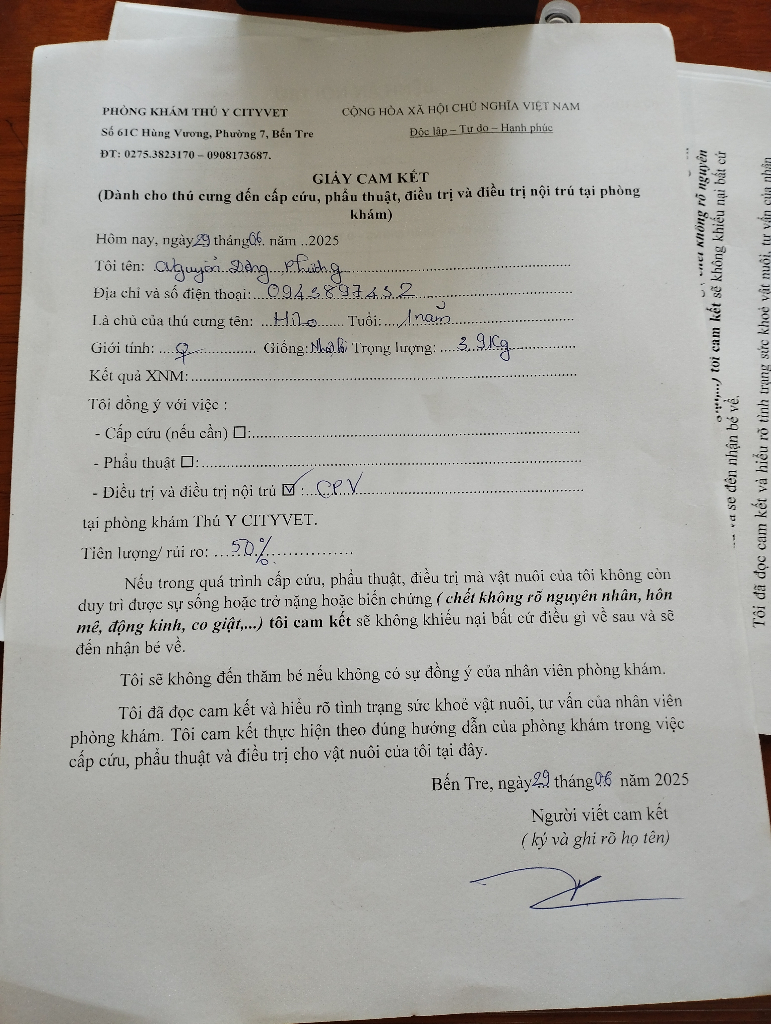 PHÒNG KHÁM THÚ Y CITYVET
Số 61C Hùng Vương, Phường 7, Bến Tre
ĐT: 0275.3823170 – 0908173687.
CỘNG HÒA XÃ HỘI CHỦ NGHĨA VIỆT NAM
Độc lập – Tự do – Hạnh phúc
GIẤY CAM KẾT
(Dành cho thú cưng đến cấp cứu, phẫu thuật, điều trị và điều trị nội trú tại phòng
khám)
Hôm nay, ngày 29 tháng 06. năm ..2025
Tôi tên: Nguyễn Đông Phương
Địa chỉ và số điện thoại: 0943897432
Là chủ của thú cưng tên: Hilo Tuổi: 1 năm
Giới tính: ♀ Giống: Trọng lượng: 3.9Kg
Kết quả XNM:
Tôi đồng ý với việc :
- Cấp cứu (nếu cần) ☐:
- Phẫu thuật ☐:
- Điều trị và điều trị nội trú ☑ : CPV
tại phòng khám Thú Y CITYVET.
Tiên lượng/ rủi ro: 50%
Nếu trong quá trình cấp cứu, phẫu thuật, điều trị mà vật nuôi của tôi không còn
duy trì được sự sống hoặc trở nặng hoặc biến chứng ( chết không rõ nguyên nhân, hôn
mê, động kinh, co giật,...) tôi cam kết sẽ không khiếu nại bất cứ điều gì về sau và sẽ
đến nhận bé về.
Tôi sẽ không đến thăm bé nếu không có sự đồng ý của nhân viên phòng khám.
Tôi đã đọc cam kết và hiểu rõ tình trạng sức khoẻ vật nuôi, tư vấn của nhân viên
phòng khám. Tôi cam kết thực hiện theo đúng hướng dẫn của phòng khám trong việc
cấp cứu, phẫu thuật và điều trị cho vật nuôi của tôi tại đây.
Bến Tre, ngày 29 tháng 06 năm 2025
Người viết cam kết
( ký và ghi rõ họ tên)
không rõ nguyên
tôi cam kết sẽ không khiếu nại bất cứ
sẽ đến nhận bé về.
Tôi đã đọc cam kết và hiểu rõ tình trạng sức khoẻ vật nuôi, tư vấn của nhân